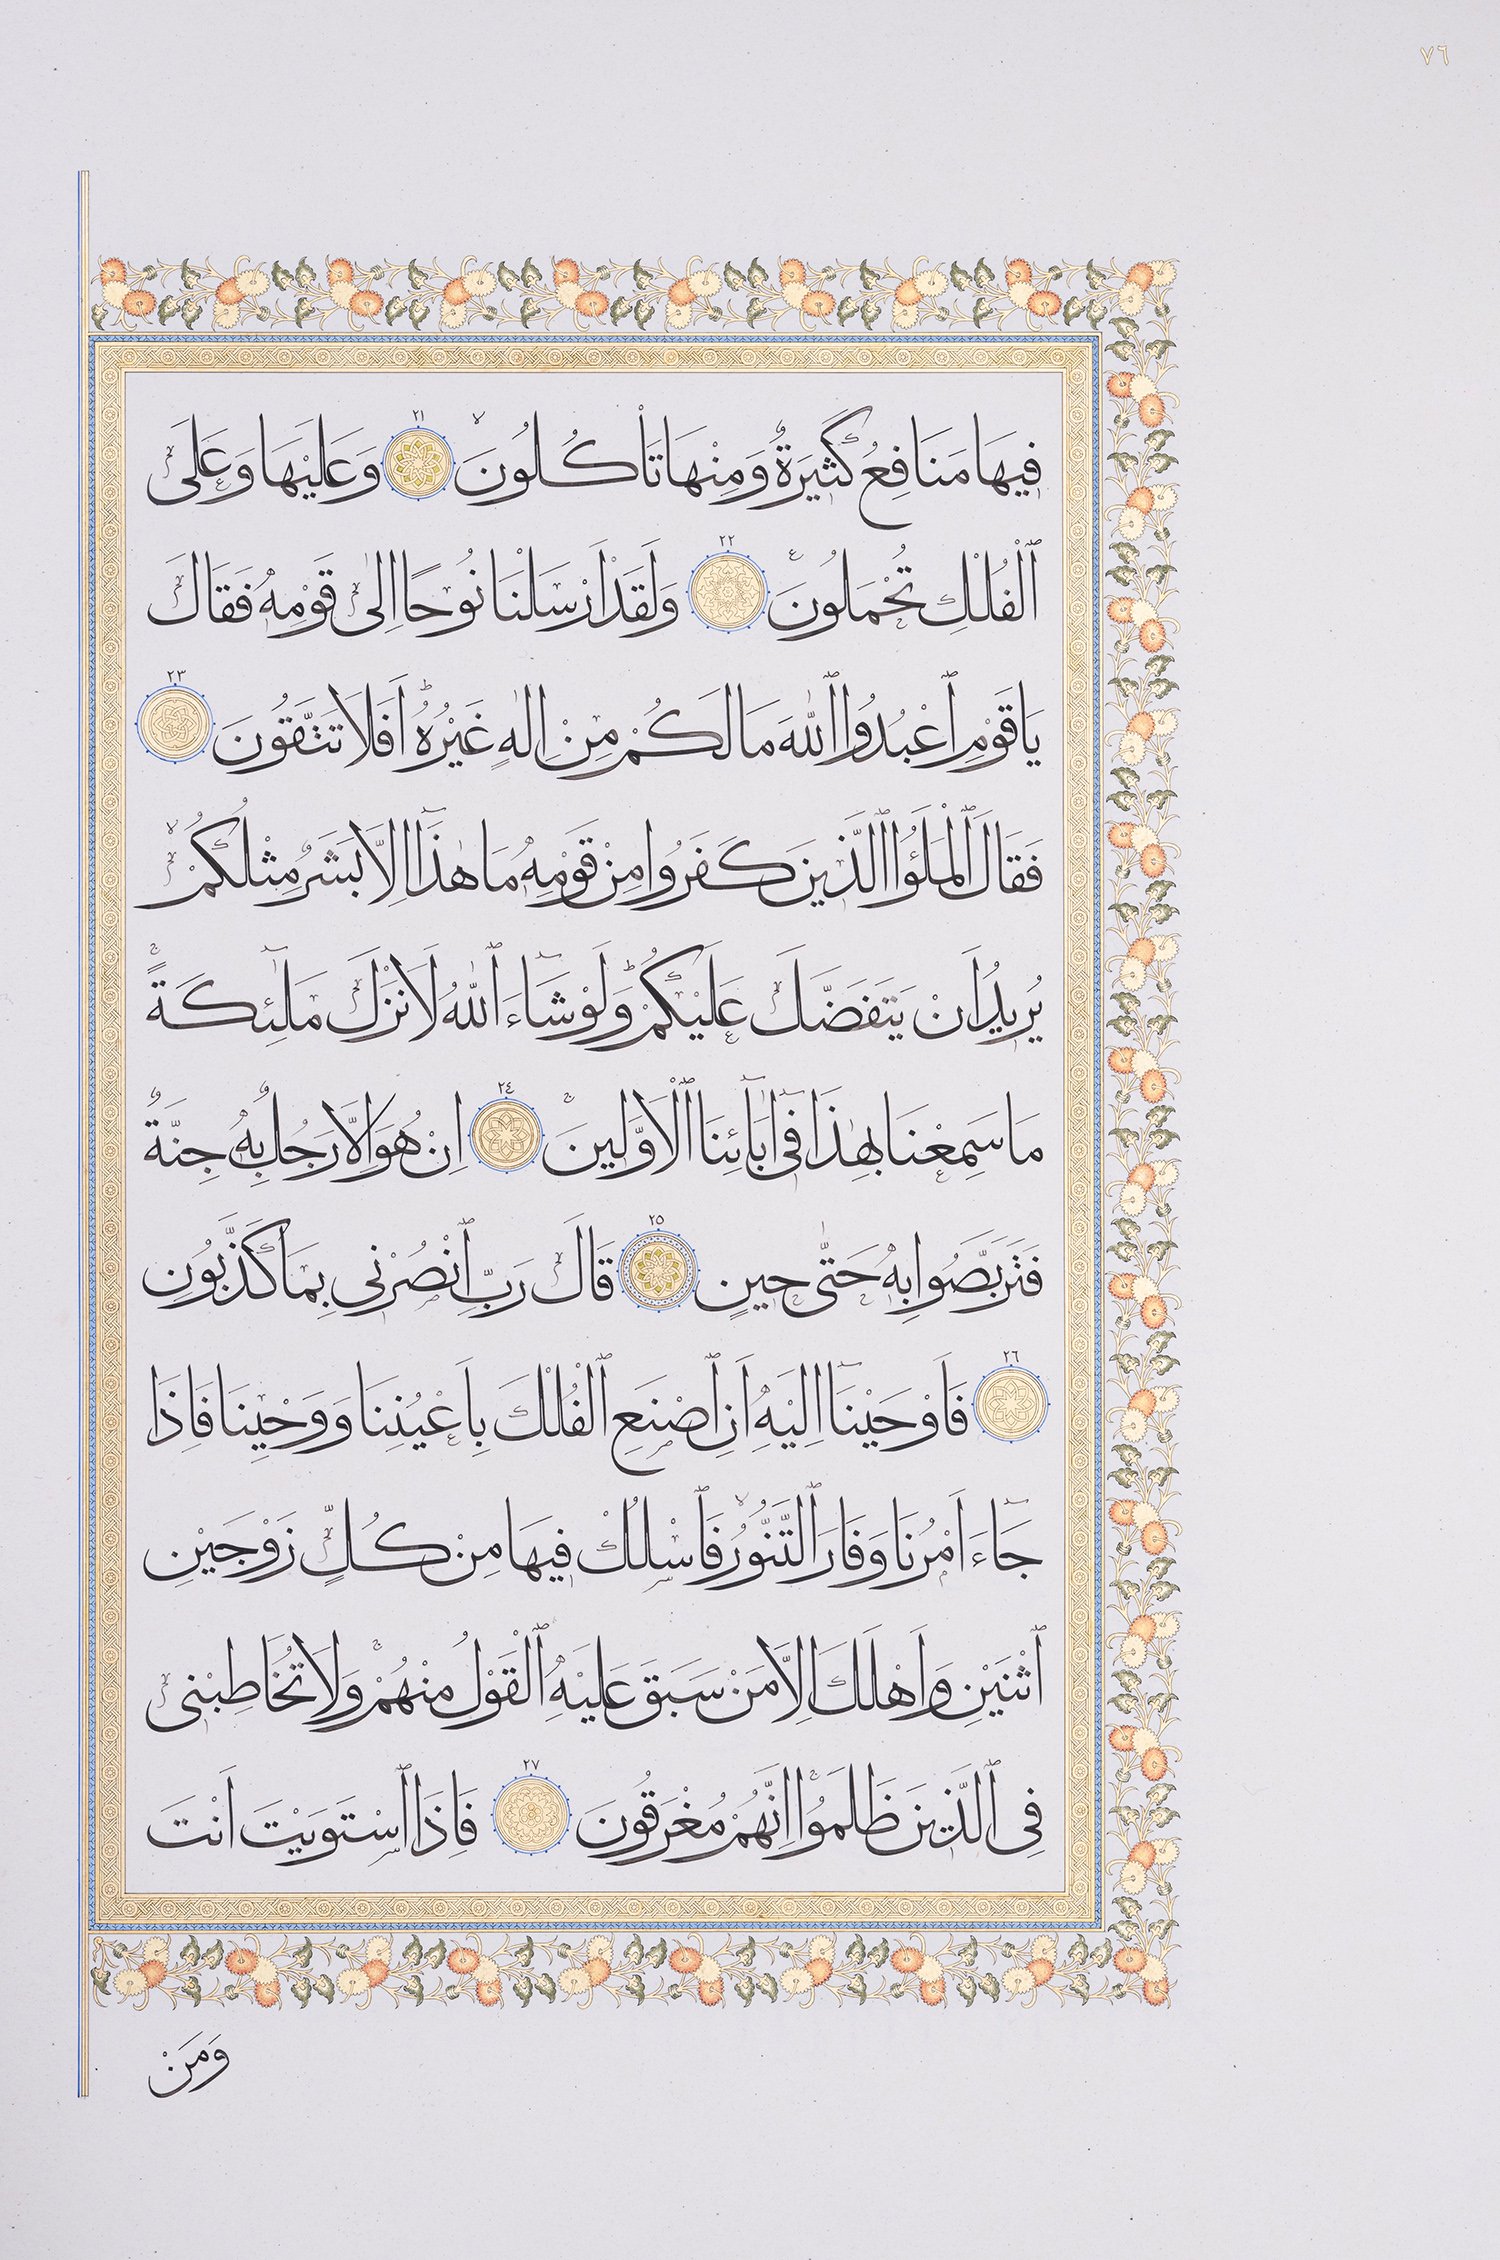 ٧٦
فِيهَا مَنَافِعُ كَثِيرَةٌ وَمِنْهَا تَأْكُلُونَ ٢١ وَعَلَيْهَا وَعَلَى
ٱلْفُلْكِ تُحْمَلُونَ ٢٢ وَلَقَدْ اَرْسَلْنَا نُوحًا اِلٰى قَوْمِهٖ فَقَالَ
يَا قَوْمِ ٱعْبُدُوا ٱللّٰهَ مَا لَكُمْ مِنْ اِلٰهٍ غَيْرُهُ اَفَلَا تَتَّقُونَ ٢٣
فَقَالَ ٱلْمَلَؤُا ٱلَّذِينَ كَفَرُوا مِنْ قَوْمِهٖ مَا هٰذَٓا اِلَّا بَشَرٌ مِثْلُكُمْ
يُرِيدُ اَنْ يَتَفَضَّلَ عَلَيْكُمْ وَلَوْ شَٓاءَ ٱللّٰهُ لَاَنْزَلَ مَلٰٓئِكَةً
مَا سَمِعْنَا بِهٰذَا فِٓى اٰبَٓائِنَا ٱلْاَوَّلِينَ ٢٤ اِنْ هُوَ اِلَّا رَجُلٌ بِهٖ جِنَّةٌ
فَتَرَبَّصُوا بِهٖ حَتّٰى حِينٍ ٢٥ قَالَ رَبِّ ٱنْصُرْنِى بِمَا كَذَّبُونِ
٢٦ فَاَوْحَيْنَٓا اِلَيْهِ اَنِ ٱصْنَعِ ٱلْفُلْكَ بِاَعْيُنِنَا وَوَحْيِنَا فَاِذَا
جَٓاءَ اَمْرُنَا وَفَارَ ٱلتَّنُّورُ فَٱسْلُكْ فِيهَا مِنْ كُلٍّ زَوْجَيْنِ
ٱثْنَيْنِ وَاَهْلَكَ اِلَّا مَنْ سَبَقَ عَلَيْهِ ٱلْقَوْلُ مِنْهُمْ وَلَا تُخَاطِبْنِى
فِى ٱلَّذِينَ ظَلَمُوا اِنَّهُمْ مُغْرَقُونَ ٢٧ فَاِذَا ٱسْتَوَيْتَ اَنْتَ
وَمَنْ